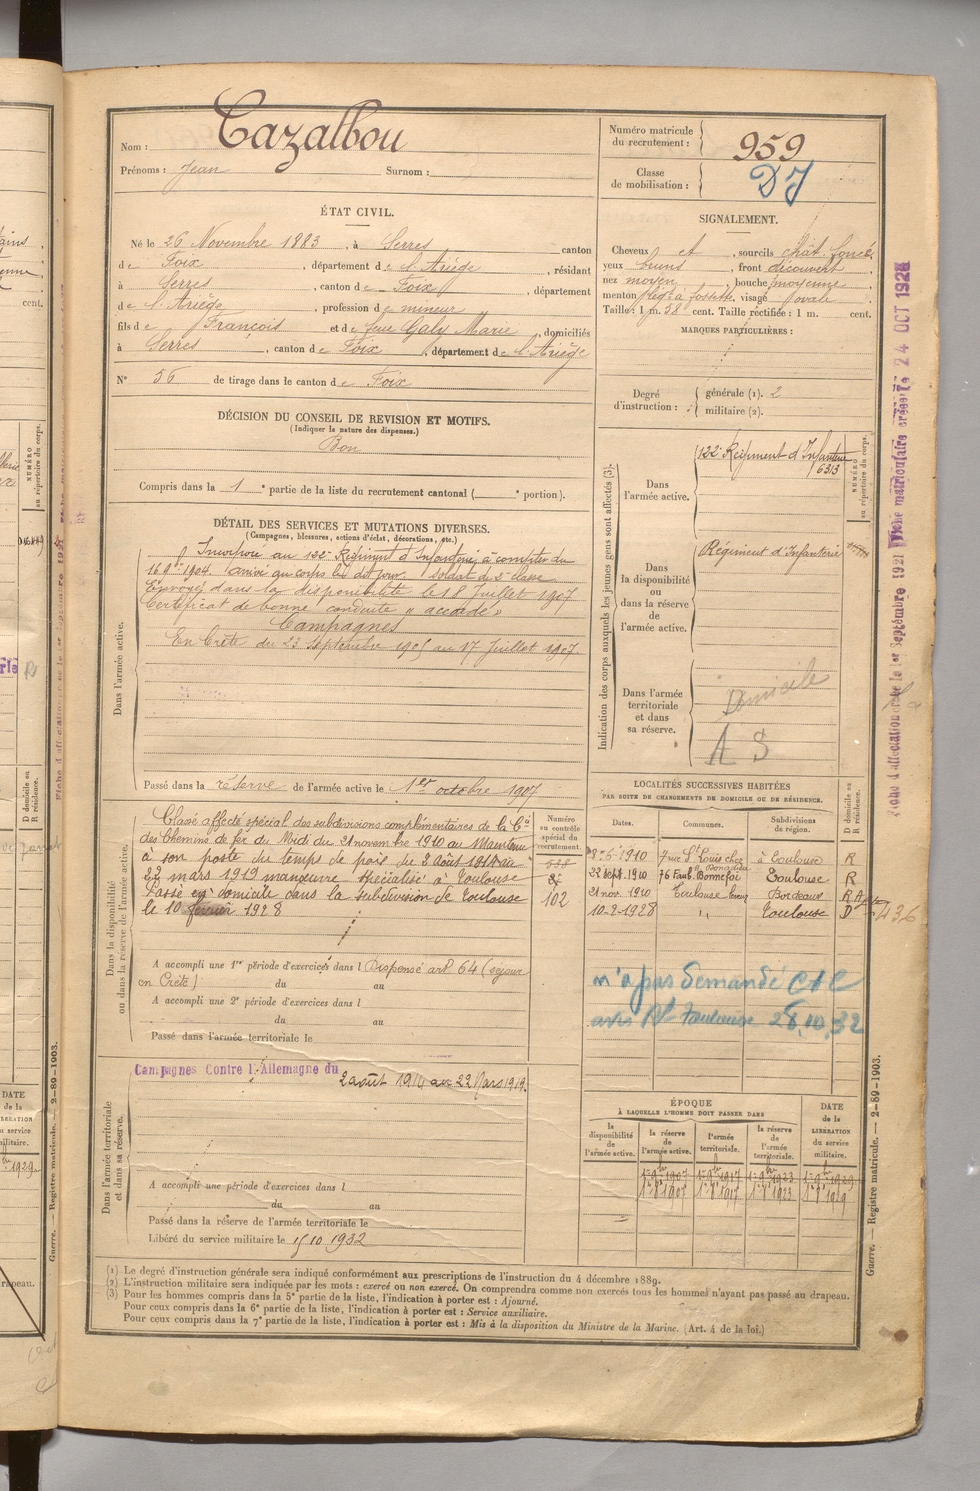 Nom : Cazalbou
Prénoms : Jean Surnom :
Numéro matricule du recrutement : 959
Classe de mobilisation : DJ
ÉTAT CIVIL.
Né le 26 Novembre 1883, à Serres canton
de Foix, département de l'Ariège, résidant
à Serres, canton de Foix, département
de l'Ariège, profession de mineur
fils de François et de feue Galy Marie, domiciliés
à Serres, canton de Foix, département de l'Ariège
N° 56 de tirage dans le canton de Foix
SIGNALEMENT.
Cheveux et, sourcils chât. foncé
yeux bruns, front découvert
nez moyen, bouche moyenne
menton à fossette, visage ovale
Taille : 1 m. 58 cent. Taille rectifiée : 1 m. cent.
MARQUES PARTICULIÈRES :
Degré d'instruction : générale (1). 2
militaire (2).
DÉCISION DU CONSEIL DE REVISION ET MOTIFS.
(Indiquer la nature des dispenses.)
Bon
Compris dans la 1e partie de la liste du recrutement cantonal ( e portion).
DÉTAIL DES SERVICES ET MUTATIONS DIVERSES.
(Campagnes, blessures, actions d'éclat, décorations, etc.)
Dans l'armée active.
Incorporé au 122e Régiment d'Infanterie à compter du
16 9bre 1904. Arrivé au corps led. dit jour soldat de 2e classe
Envoyé dans la disponibilité le 18 Juillet 1907
Certificat de bonne conduite « accordé »
Campagnes
En Crète du 23 Septembre 1905 au 17 Juillet 1907.
Passé dans la réserve de l'armée active le 1er octobre 1907
Indication des corps auxquels les jeunes gens sont affectés (3).
NUMÉRO au répertoire du corps.
Dans l'armée active.
122e Régiment d'Infanterie
6313
Dans la disponibilité ou dans la réserve de l'armée active.
Régiment d'Infanterie
Dans l'armée territoriale et dans sa réserve.
Domicile
A S
Dans la disponibilité ou dans la réserve de l'armée active.
Classé affecté spécial des subdivisions complémentaires de la Cie
des Chemins de fer du Midi du 21 novembre 1910 au Maintenu
à son poste du temps de paix du 2 Août 1914 au
22 mars 1919 manœuvre spécialisé à Toulouse
Passé en domicile dans la subdivision de Toulouse
le 10 février 1928
Numéro au contrôle spécial du recrutement.
102
A accompli une 1re période d'exercices dans l Dispensé art 64 (séjour
en Crète) du au
A accompli une 2e période d'exercices dans l
du au
Passé dans l'armée territoriale le
LOCALITÉS SUCCESSIVES HABITÉES
PAR SUITE DE CHANGEMENTS DE DOMICILE OU DE RÉSIDENCE.
Dates. Communes. Subdivisions de région. D domicile ou R résidence.
8-6-1910 7 rue St Louis chez à Toulouse R
22 sept. 1910 76 Faub. Bonnefoi Toulouse R
21 nov. 1910 Toulouse Bordeaux R
10-2-1928 " Toulouse D
436
n'a pas demandé C A C
avis Rt Toulouse 28.10.32
Dans l'armée territoriale et dans sa réserve.
Campagnes Contre l'Allemagne du 2 août 1914 au 22 Mars 1919.
A accompli une période d'exercices dans l
du au
Passé dans la réserve de l'armée territoriale le
Libéré du service militaire le 15 10 1932
ÉPOQUE
À LAQUELLE L'HOMME DOIT PASSER DANS
la disponibilité de l'armée active. la réserve de l'armée active. l'armée territoriale. la réserve de l'armée territoriale. DATE de la LIBÉRATION du service militaire.
1er 9bre 1907 1er 9bre 1917 1er 9bre 1923 1er 9bre 1929
(1) Le degré d'instruction générale sera indiqué conformément aux prescriptions de l'instruction du 4 décembre 1889.
(2) L'instruction militaire sera indiquée par les mots : exercé ou non exercé. On comprendra comme non exercés tous les hommes n'ayant pas passé au drapeau.
(3) Pour les hommes compris dans la 5e partie de la liste, l'indication à porter est : Ajourné.
Pour ceux compris dans la 6e partie de la liste, l'indication à porter est : Service auxiliaire.
Pour ceux compris dans la 7e partie de la liste, l'indication à porter est : Mis à la disposition du Ministre de la Marine. (Art. 4 de la loi.)
Guerre. — Registre matricule. — 2-89-1903.
Fiche d'affectation créée le 1er Septembre 1921 Fiche matriculaire créée le 24 OCT 1928
Guerre. — Registre matricule. — 2-89-1903.